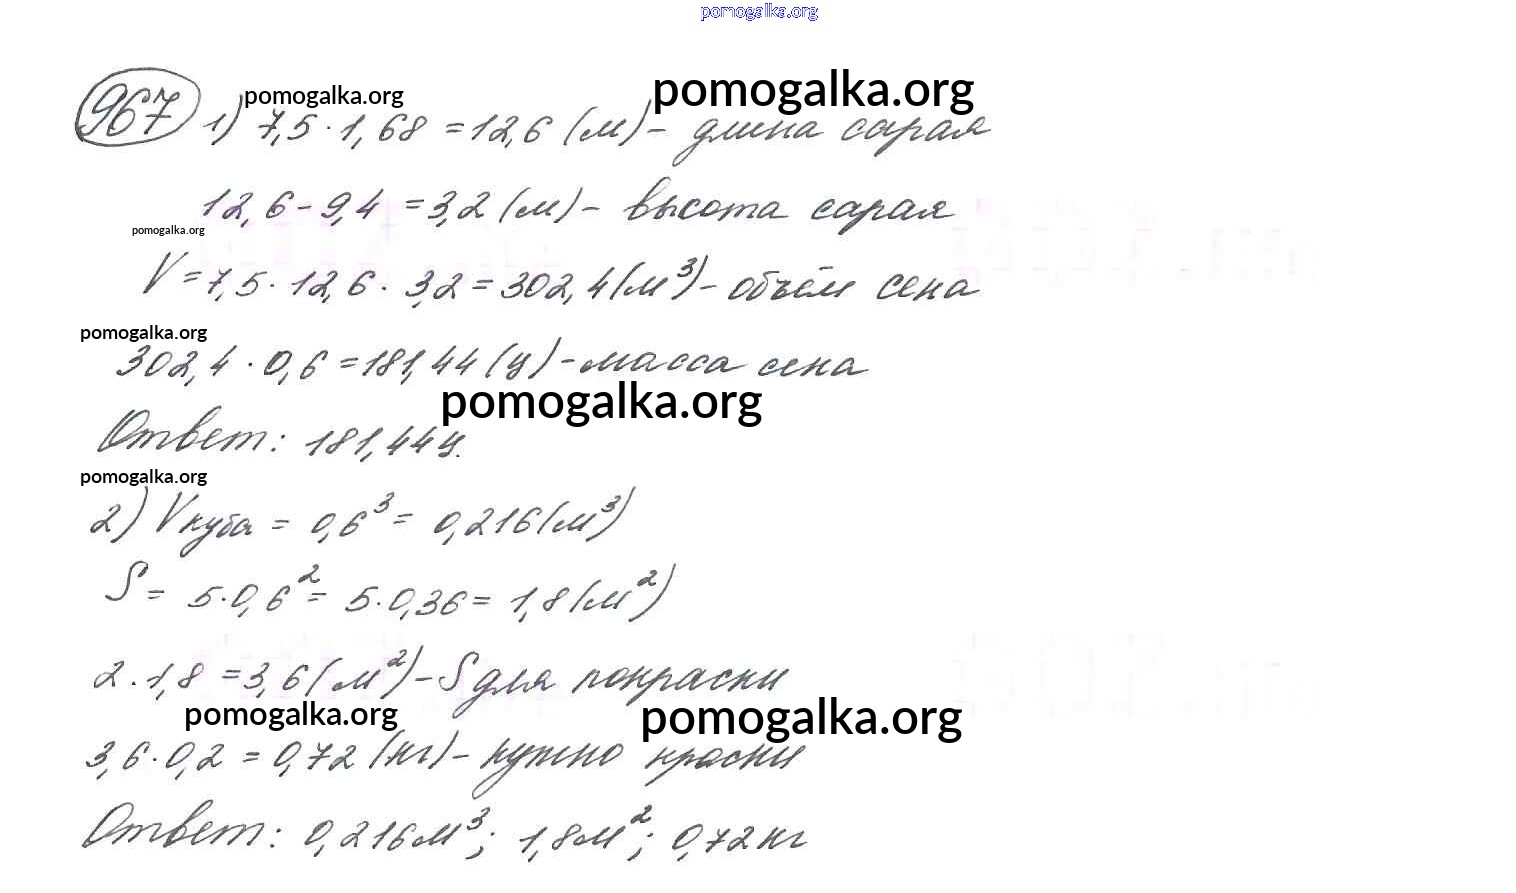 pomogalka.org
967 1) 7,5 · 1,68 = 12,6 (м) - длина сарая
pomogalka.org
pomogalka.org
12,6 - 9,4 = 3,2 (м) - высота сарая
pomogalka.org
V = 7,5 · 12,6 · 3,2 = 302,4 (м³) - объём сена
pomogalka.org
302,4 · 0,6 = 181,44 (ц) - масса сена
pomogalka.org
Ответ: 181,44 ц.
pomogalka.org
2) V куба = 0,6³ = 0,216 (м³)
S = 5 · 0,6² = 5 · 0,36 = 1,8 (м²)
2 · 1,8 = 3,6 (м²) - S для покраски
pomogalka.org
pomogalka.org
3,6 · 0,2 = 0,72 (кг) - нужно краски
Ответ: 0,216 м³; 1,8 м²; 0,72 кг